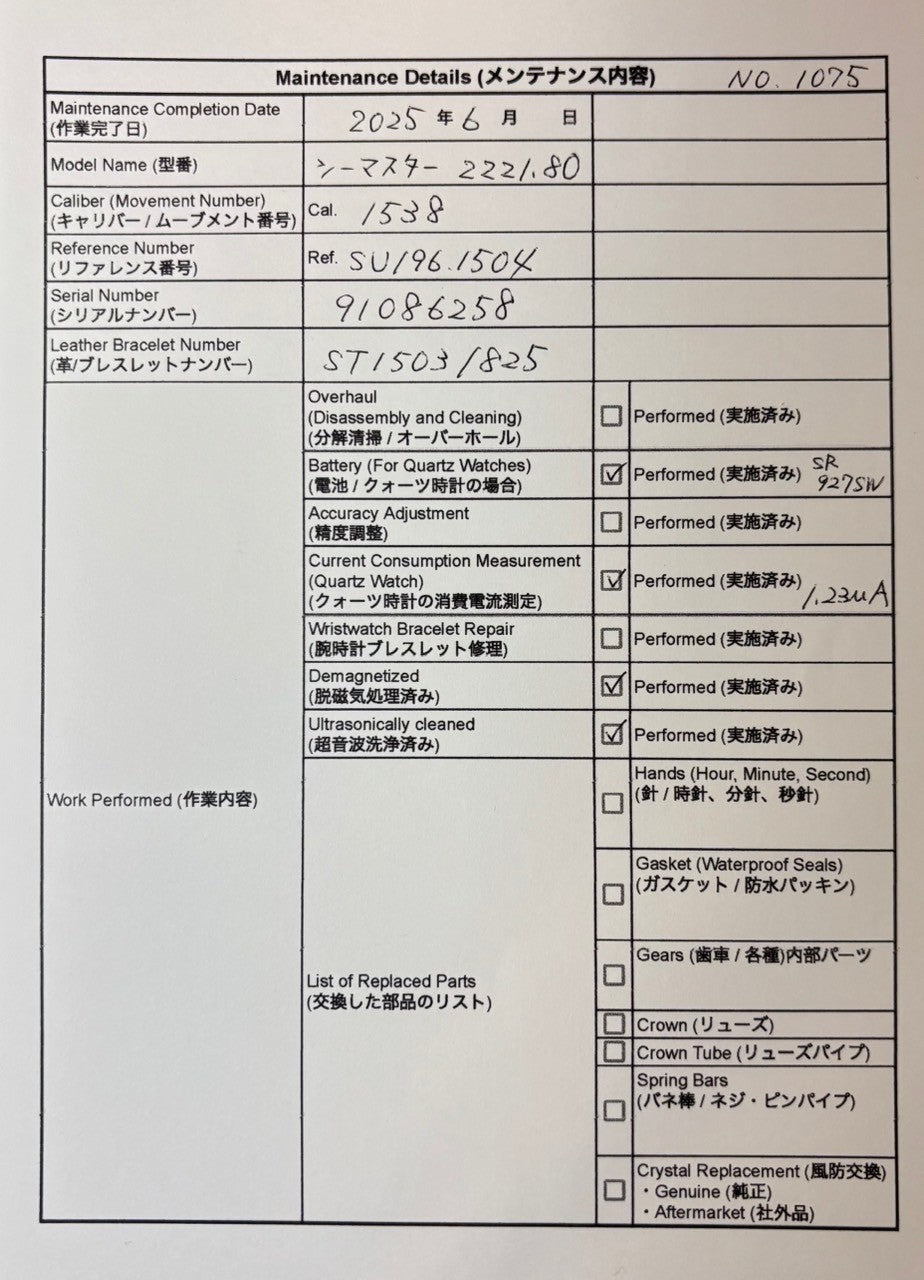 Maintenance Details (メンテナンス内容) NO. 1075
Maintenance Completion Date
(作業完了日)
2025 年 6 月 日
Model Name (型番)
シーマスター 2221.80
Caliber (Movement Number)
(キャリバー / ムーブメント番号)
Cal. 1538
Reference Number
(リファレンス番号)
Ref. SU196.1504
Serial Number
(シリアルナンバー)
91086258
Leather Bracelet Number
(革/ブレスレットナンバー)
ST1503/825
Work Performed (作業内容)
Overhaul
(Disassembly and Cleaning)
(分解清掃 / オーバーホール)
☐ Performed (実施済み)
Battery (For Quartz Watches)
(電池 / クォーツ時計の場合)
☑ Performed (実施済み) SR
927SW
Accuracy Adjustment
(精度調整)
☐ Performed (実施済み)
Current Consumption Measurement
(Quartz Watch)
(クォーツ時計の消費電流測定)
☑ Performed (実施済み)
1.23μA
Wristwatch Bracelet Repair
(腕時計ブレスレット修理)
☐ Performed (実施済み)
Demagnetized
(脱磁気処理済み)
☑ Performed (実施済み)
Ultrasonically cleaned
(超音波洗浄済み)
☑ Performed (実施済み)
List of Replaced Parts
(交換した部品のリスト)
☐ Hands (Hour, Minute, Second)
(針 / 時針、分針、秒針)
☐ Gasket (Waterproof Seals)
(ガスケット / 防水パッキン)
☐ Gears (歯車 / 各種)内部パーツ
☐ Crown (リューズ)
☐ Crown Tube (リューズパイプ)
☐ Spring Bars
(バネ棒 / ネジ・ピンパイプ)
☐ Crystal Replacement (風防交換)
・Genuine (純正)
・Aftermarket (社外品)